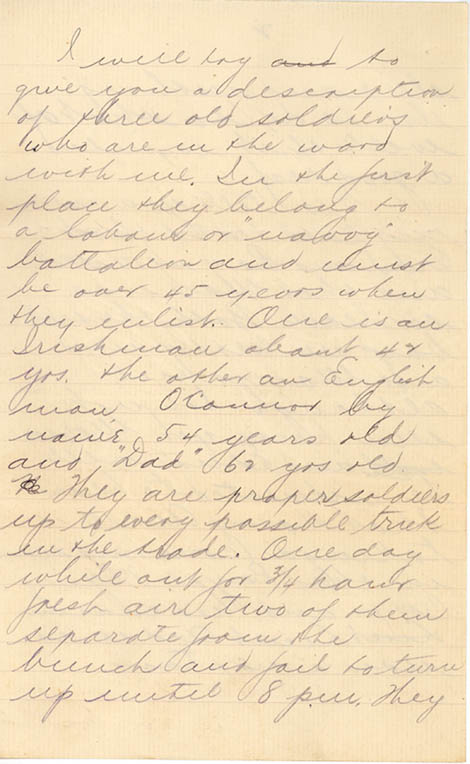 I will try and to
give you a description
of three old soldiers
who are in the ward
with me. In the first
place they belong to
a labour or "navvy"
battalion and must
be over 45 years when
they enlist. One is an
Irishman about 47
yrs. the other an English
man, O'Connor by
name, 54 years old
and "Dad" 62 yrs old.
They are proper soldiers
up to every possible trick
in the trade. One day
while out for 3/4 hour
fresh air two of them
separate from the
bunch and fail to turn
up until 8 p.m. They